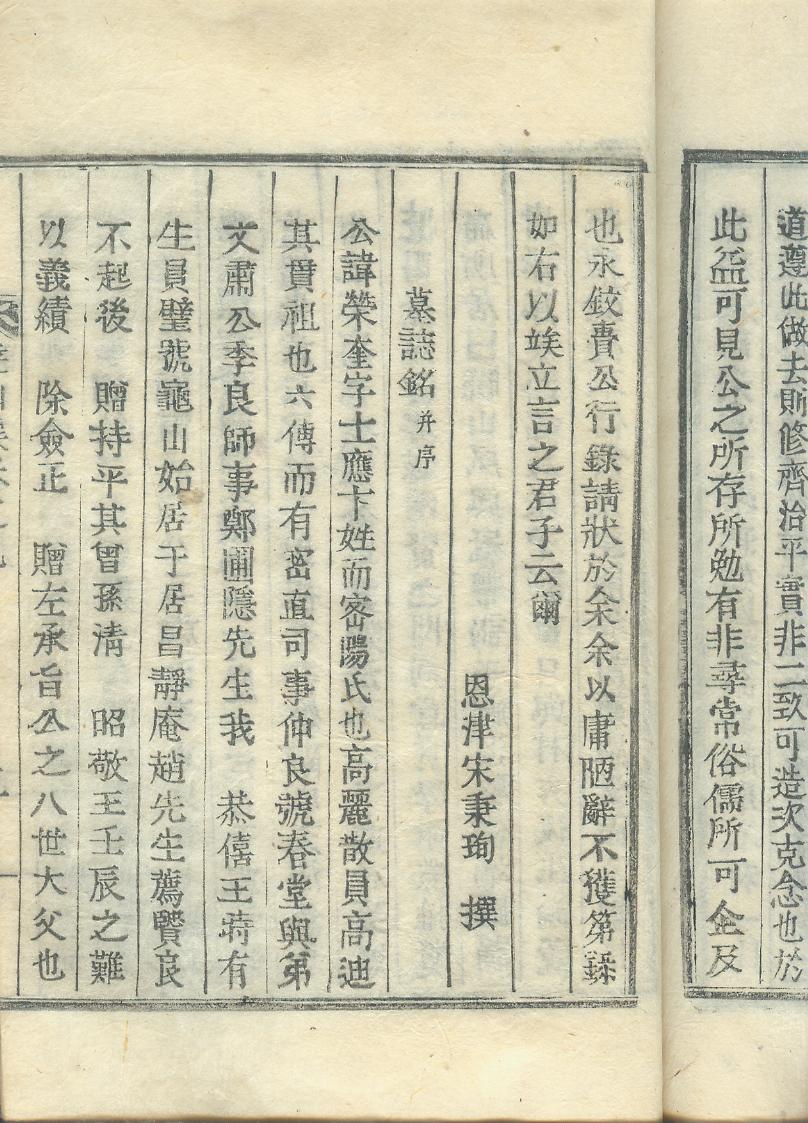 道遵此做去則修齊治平實非二致可造次克念也於
此益可見公之所存所勉有非尋常俗儒所可企及
也永鉸賫公行錄請狀於余余以庸陋辭不獲第錄
如右以竢立言之君子云爾
恩津宋秉珣 撰
墓誌銘并序
公諱榮奎字士應卞姓而密陽氏也高麗散員高迪
其貫祖也六傳而有密直司事仲良號春堂與弟
文肅公季良師事鄭圃隱先生我 恭僖王時有
生員璧號龜山始居于居昌靜庵趙先生薦賢良
不起後 贈持平其曾孫淸 昭敬王壬辰之難
以義績 除僉正 贈左承旨公之八世大父也